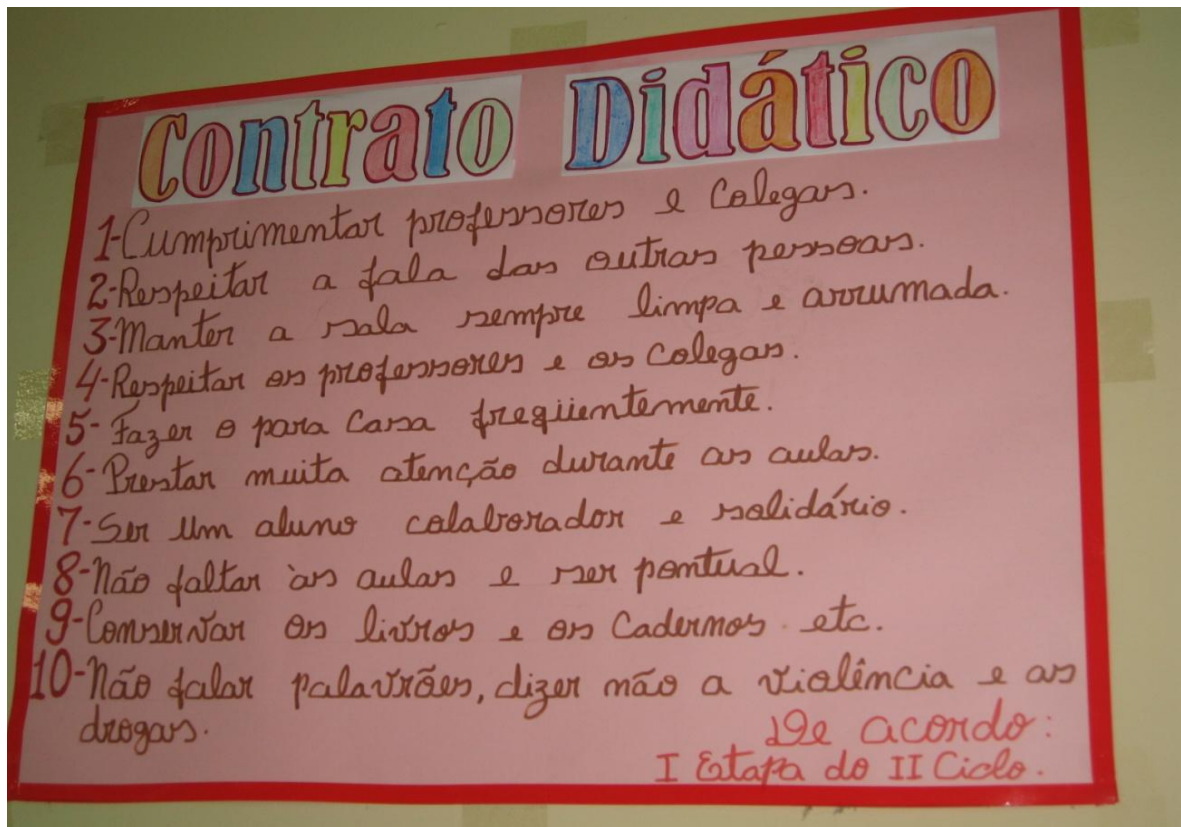 Contrato Didático
1-Cumprimentar professores e Colegas.
2-Respeitar a fala das outras pessoas.
3-Manter a sala sempre limpa e arrumada.
4-Respeitar os professores e os colegas.
5-Fazer o para Casa freqüentemente.
6-Prestar muita atenção durante as aulas.
7-Ser um aluno colaborador e solidário.
8-Não faltar às aulas e ser pontual.
9-Conservar os livros e os Cadernos etc.
10-Não falar palavrões, dizer não a violência e as
drogas.
De acordo:
I Etapa do II Ciclo.